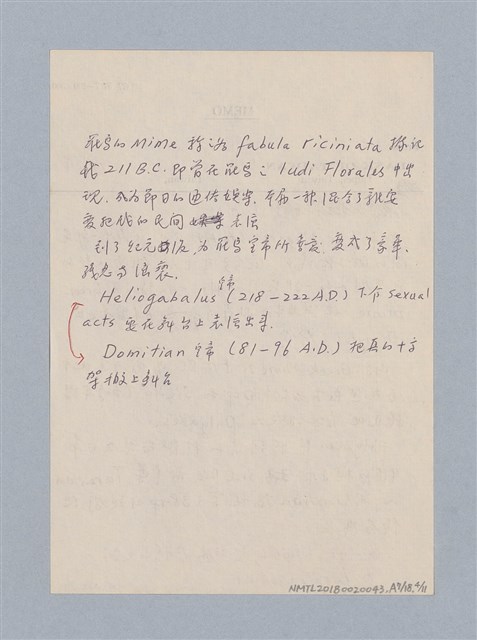 羅馬的 Mime 称為 fabula riciniata 據記
載 211 B.C. 即曾在羅馬之 ludi Florales 中出
現，成為節日的通俗娛樂，本為一種混合了
變把戲的民間 表演
到了紀元後，為羅馬皇帝所喜愛，變成了豪華、
殘忍与淫褻。
Heliogabalus 皇帝 (218-222 A.D.) 下令 sexual
acts 要在舞台上表演出來.
Domitian 皇帝 (81-96 A.D.) 把真的十字
架搬上舞台
NMTL20180020043.A7/18.4/11
MEMO